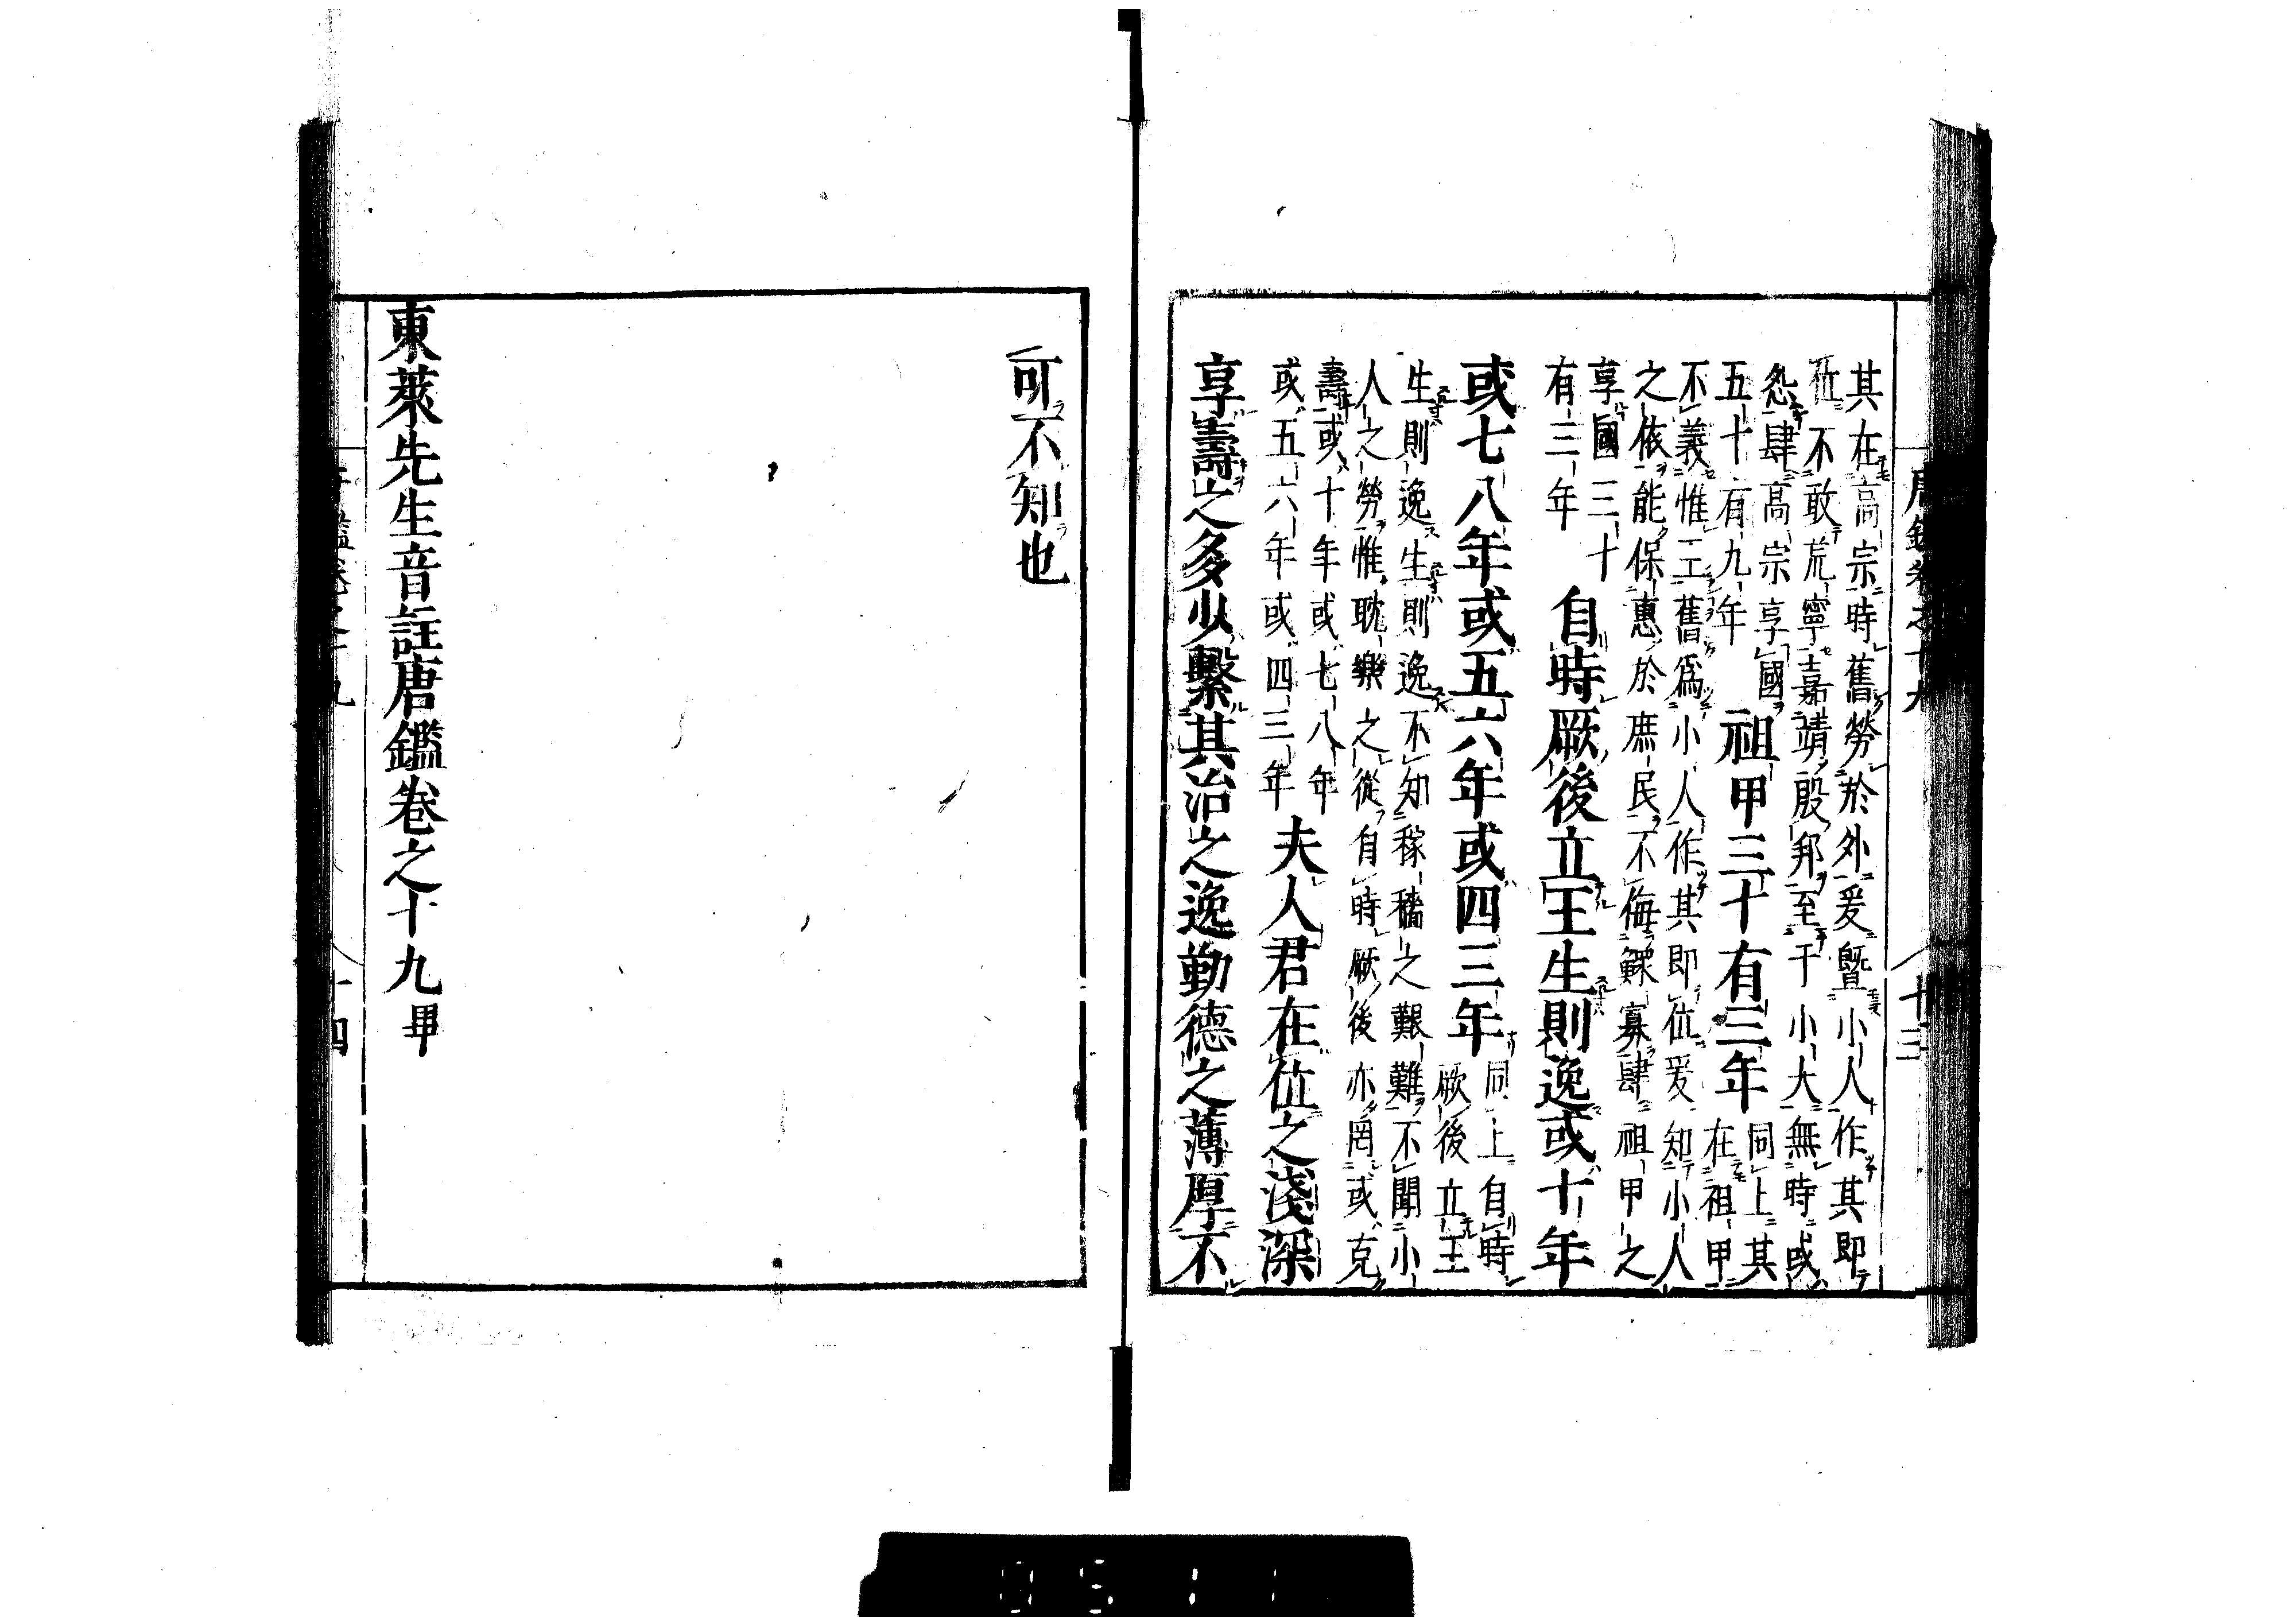 唐鑑卷之十九 十三
其在高宗時舊勞於外爰曁小人作其即
位不敢荒寧嘉靖殷邦至于小大無時或
怨肆高宗享國
五十有九年
祖甲三十有三年
同上其
在祖甲
不義惟王舊爲小人作其即位爰知小人
之依能保惠於庶民不侮鰥寡肆祖甲之
享國三十
有三年
自時厥後立王生則逸或十年
或七八年或五六年或四三年
同上自時
厥後立王
生則逸生則逸不知稼穡之艱難不聞小
人之勞惟耽樂之從自時厥後亦罔或克
壽或十年或七八年
或五六年或四三年
夫人君在位之淺深
享壽之多少繫其治之逸勤德之薄厚不
可不知也
東萊先生音註唐鑑卷之十九畢